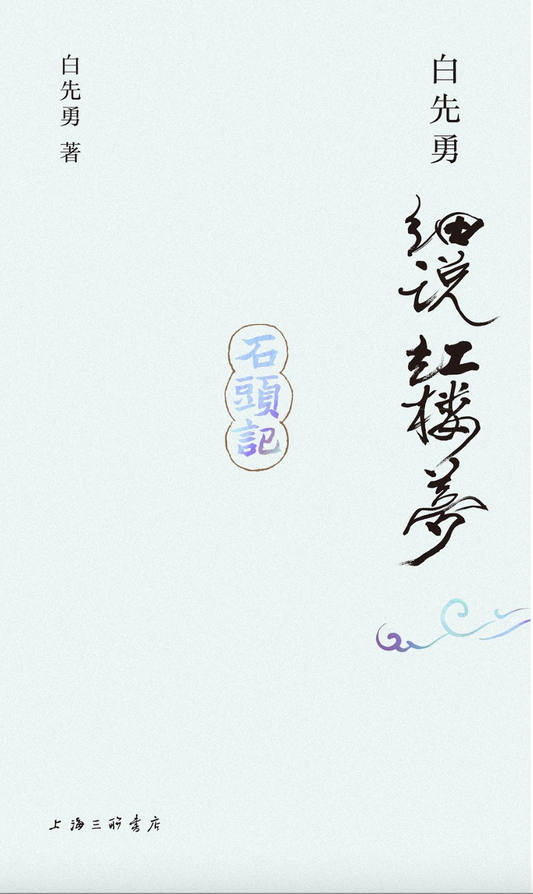 白先勇
细说红楼夢
石頭記
白先勇 著
上海三联書店